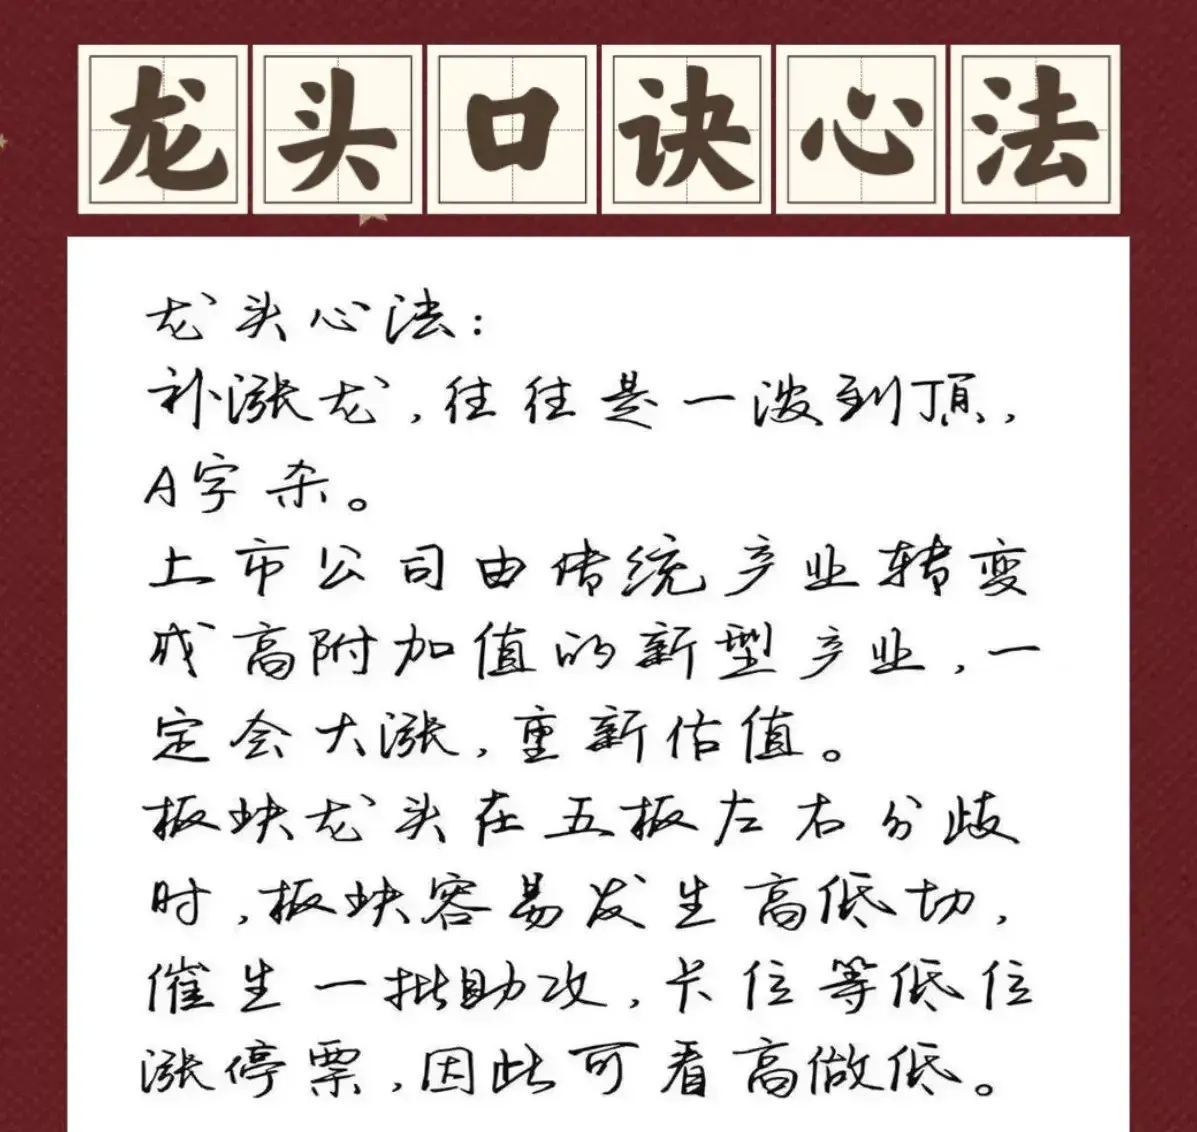 龙头口诀心法
龙头心法：
补涨龙，往往是一泼到頂，
A字杀。
上市公司由传统产业转变
成高附加值的新型产业，一
定会大涨，重新估值。
板块龙头在五板左右分歧
时，板块容易发生高低切，
催生一批助攻，卡位等低位
涨停票，因此可看高做低。